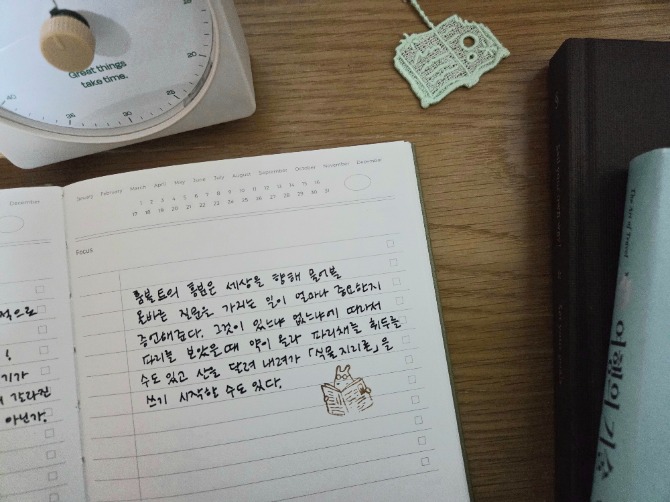 Great things
take time.
40
35
30
25
20
December
January February March April May June July August September October November December
1 2 3 4 5 6 7 8 9 10 11 12 13 14 15 16
17 18 19 20 21 22 23 24 25 26 27 28 29 30 31
Focus
훔볼트의 통봄은 세상을 향해 물어볼
올바른 질문을 가지는 일이 얼마나 중요한지
증언해준다. 그것이 있느냐 없느냐에 따라서
파리를 보았을 때 약이 올라 파리채를 휘두를
수도 있고 산을 달려 내려가 「식물지리론」을
쓰기 시작할 수도 있다.
적으로
기가
갈라진
아닌가.
The Art of Travel
여행의 기술